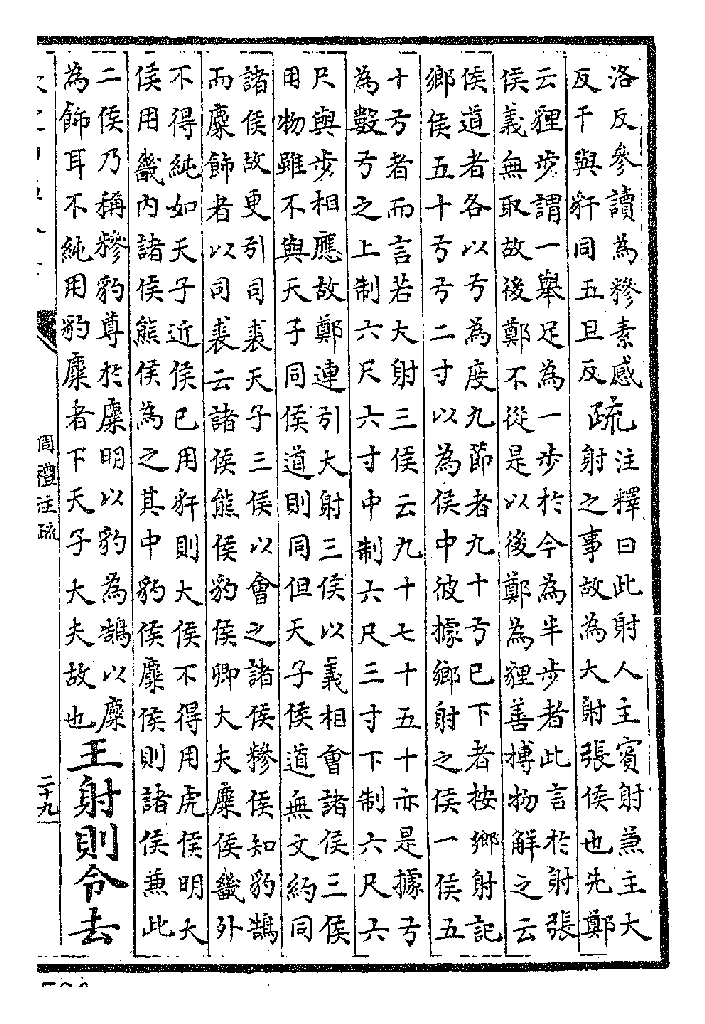 洛反參讀為糝素感
反干與豻同五旦反
疏
注釋曰此射人主賓射兼主大
射之事故為大射張侯也先鄭
云貍步謂一舉足為一步於今為半步者此言於射張
侯義無取故後鄭不從是以後鄭為貍善搏物解之云
侯道者各以弓為度九節者九十弓已下者按鄉射記
鄉侯五十弓弓二寸以為侯中彼據鄉射之侯一侯五
十弓者而言若大射三侯云九十七十五十亦是據弓
為數弓之上制六尺六寸中制六尺三寸下制六尺六
尺與步相應故鄭連引大射三侯以義相會諸侯三侯
用物雖不與天子同侯道則同但天子侯道無文約同
諸侯故更引司裘天子三侯以會之諸侯糝侯知豹鵠
而麋飾者以司裘云諸侯熊侯豹侯卿大夫麋侯畿外
不得純如天子近侯已用豻則大侯不得用虎侯明大
侯用畿內諸侯熊侯為之其中豹侯麋侯則諸侯兼此
二侯乃稱糝豹尊於麋明以豹為鵠以麋
為飾耳不純用豹麋者下天子大夫故也
王射則令去
周禮注疏
二十九